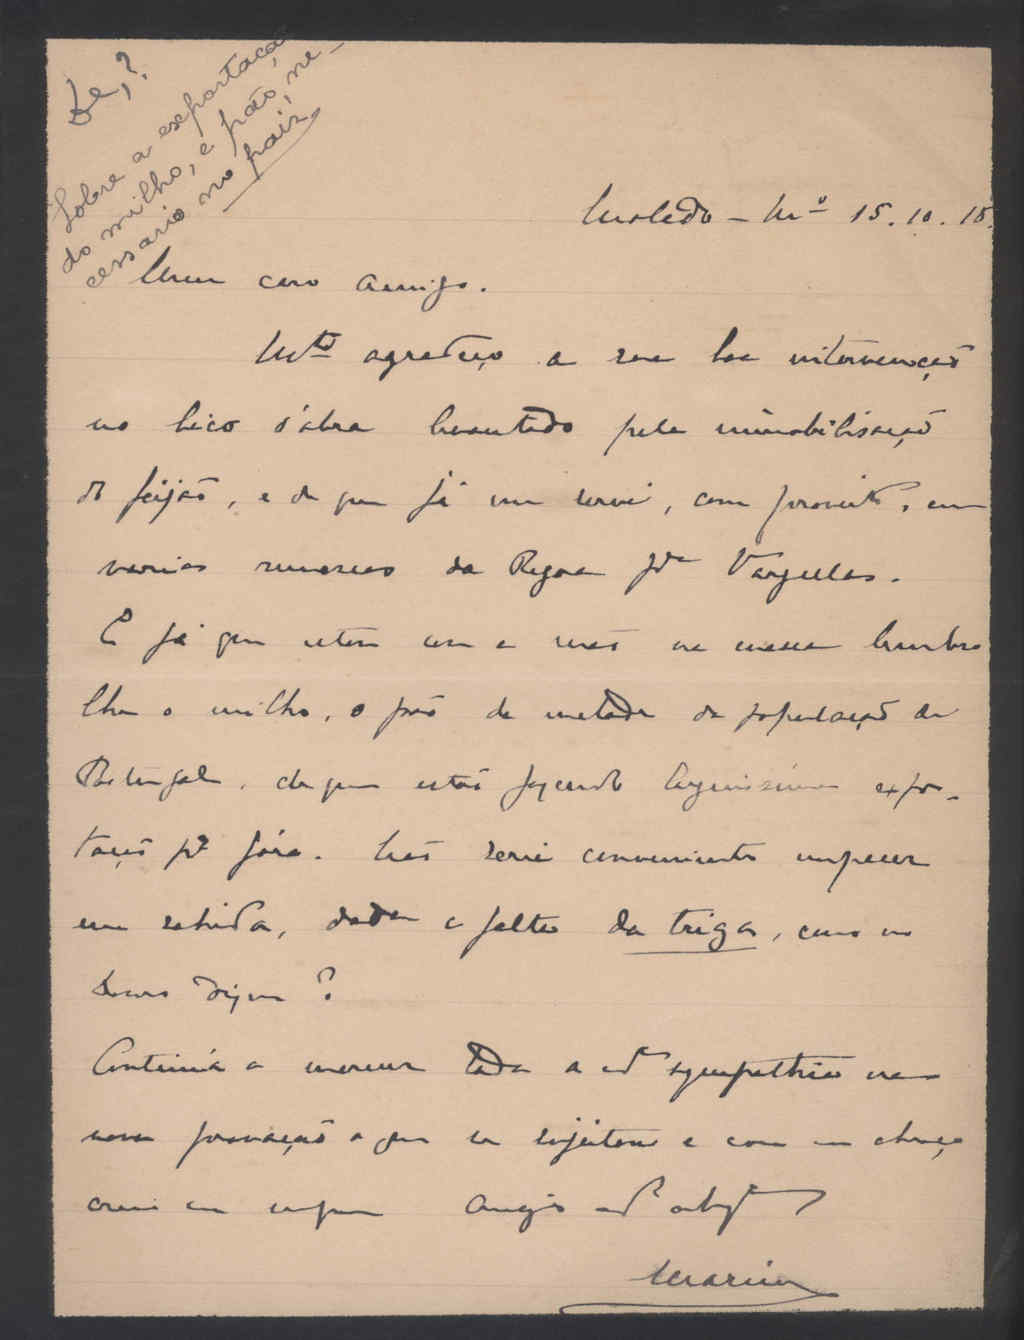 Le,?
Sobre a exportação
do milho, e pão, ne-
cessario no paiz
15.10.18.
Meu caro Amigo.
Mto agradeço a sua boa intervenção
no bico d'obra levantado pela immobilisação
do feijão, e de que já me servi, com proveito, em
varias remessas da Regoa pa Vargellas.
E já que está com a mão na massa lembro
lhe o milho, o pão de metade da população de
Portugal, de que estão fazendo larguissima expor-
tação pa fóra. Não seria conveniente impedir
essa sahida, dada a falta de trigo, como no
Douro dizem?
Continúa a merecer toda a sympathia na
nova provação a que se sujeitou e com um abraço
creia em quem Amigo